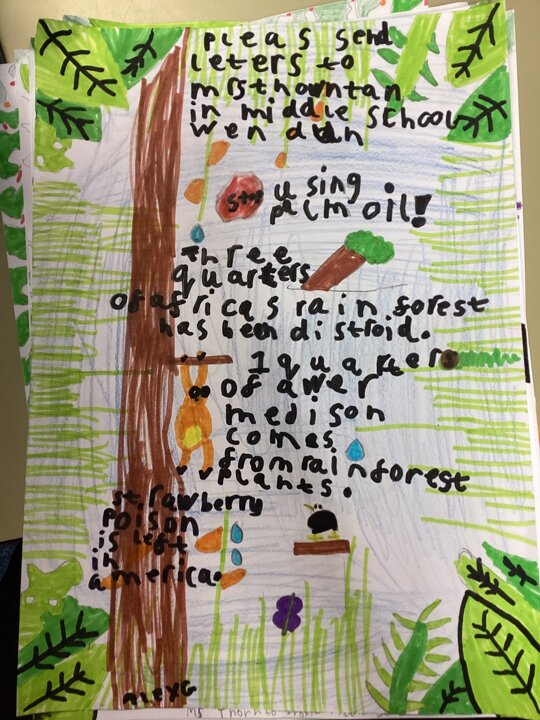 pleas send
leters to
mrsthowntan
in middle school
wen dun
stop using
palm oil!
three
quarters
of africas rain forest
has been distroid.
1 quarter
of awer
medison
comes
from rainforest
plants.
strawberry
poison
is left
in
america.
ALEXG
Ms Thornto